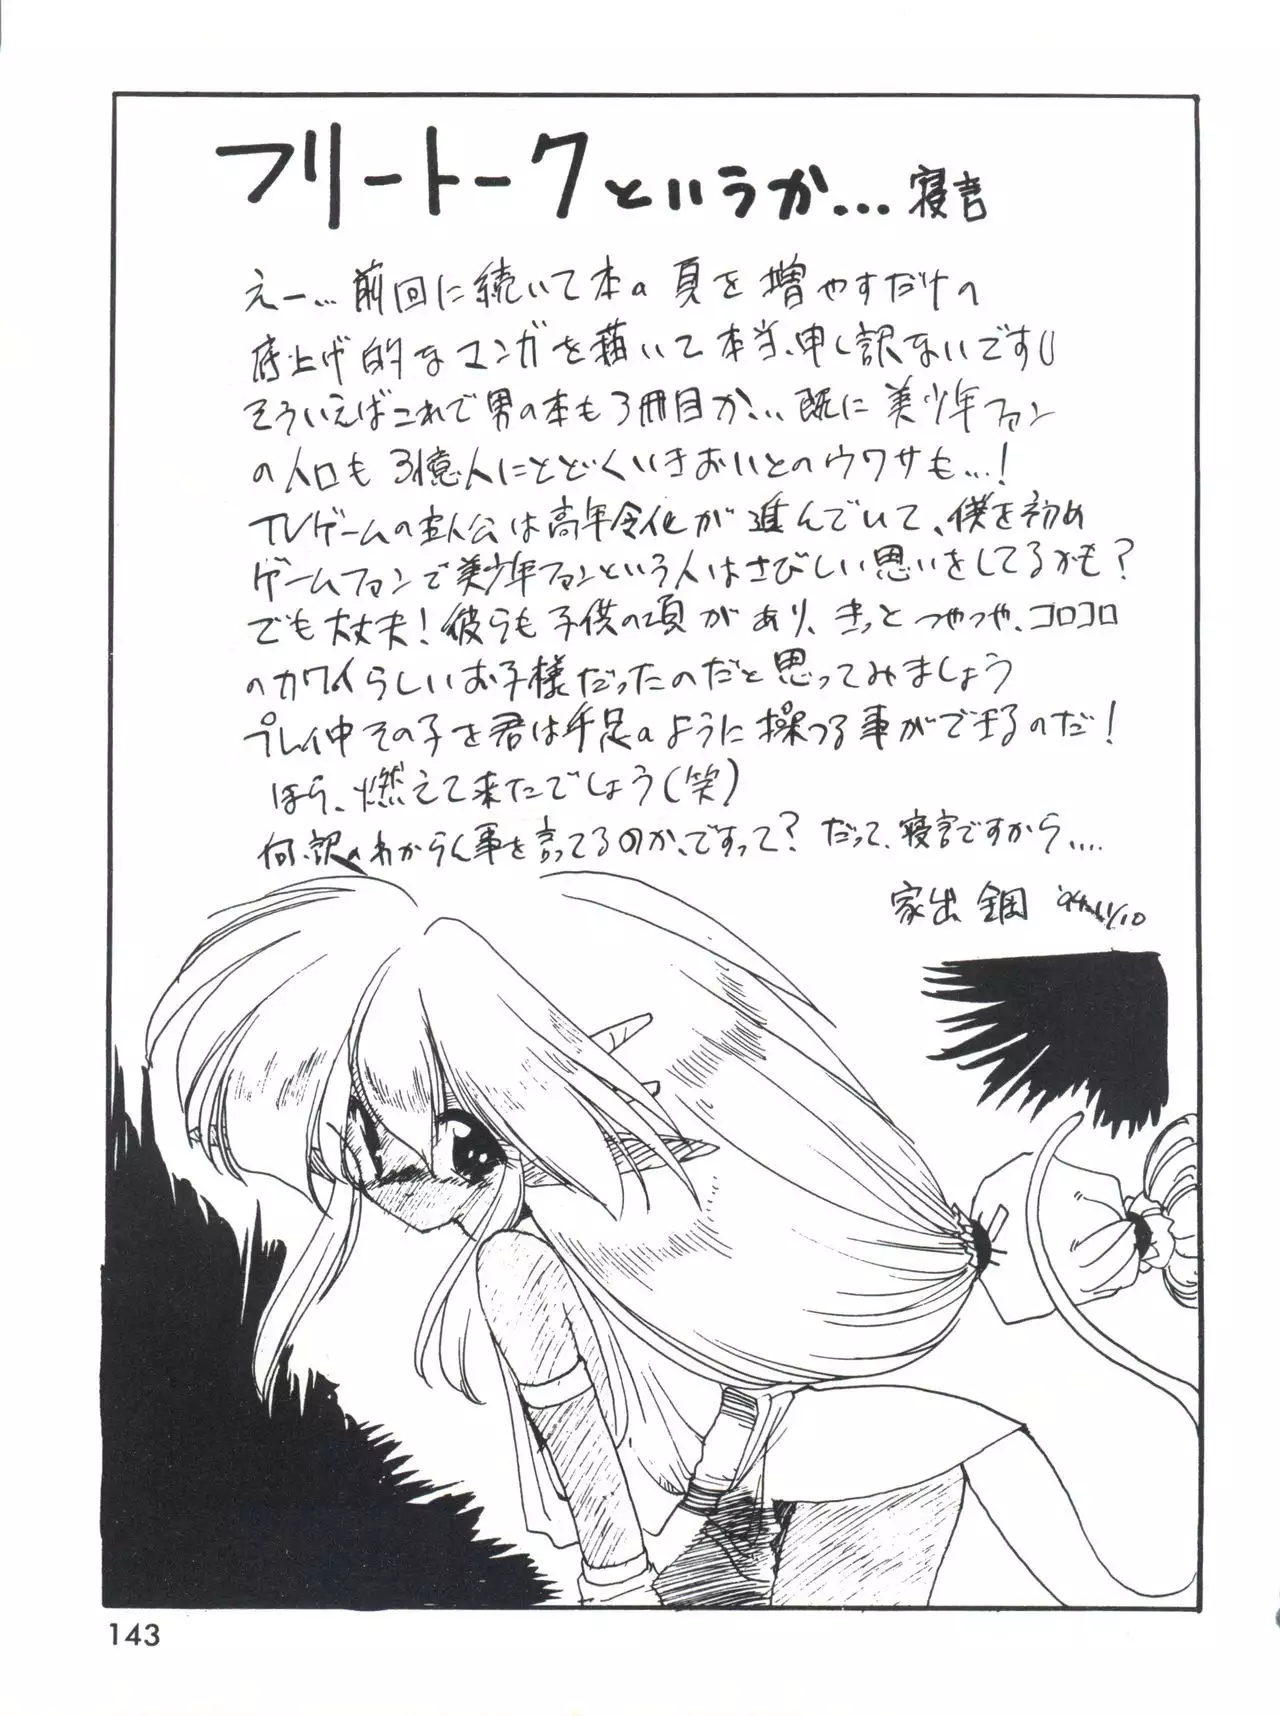 フリートークというか… 寝言
えー… 前回に続いて本の頁を増やすだけの
底上げ的なマンガを描いて本当、申し訳ないです
そういえばこれで男の本も3冊目か… 既に美少年ファン
の人口も3億人にとどくいきおいとのウワサも…!
TVゲームの主人公は高年令化が進んでいて、僕を初め
ゲームファンで美少年ファンという人はさびしい思いをしてるかも?
でも大丈夫!彼らも子供の頃があり、きっとつやつや、コロコロ
のカワイらしいお子様だったのだと思ってみましょう
プレイ中その子を君は手足のように操つる事ができるのだ!
ほら、燃えて来たでしょう(笑)
何、訳のわからん事を言ってるのか、ですって? だって、寝言ですから….
家出 鋼 '94.11/10
143